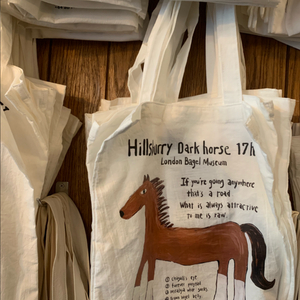 Hillsurry Dark horse 17h
London Bagel Museum
If you're going anywhere
this a road
What is always attractive
to me is raw.